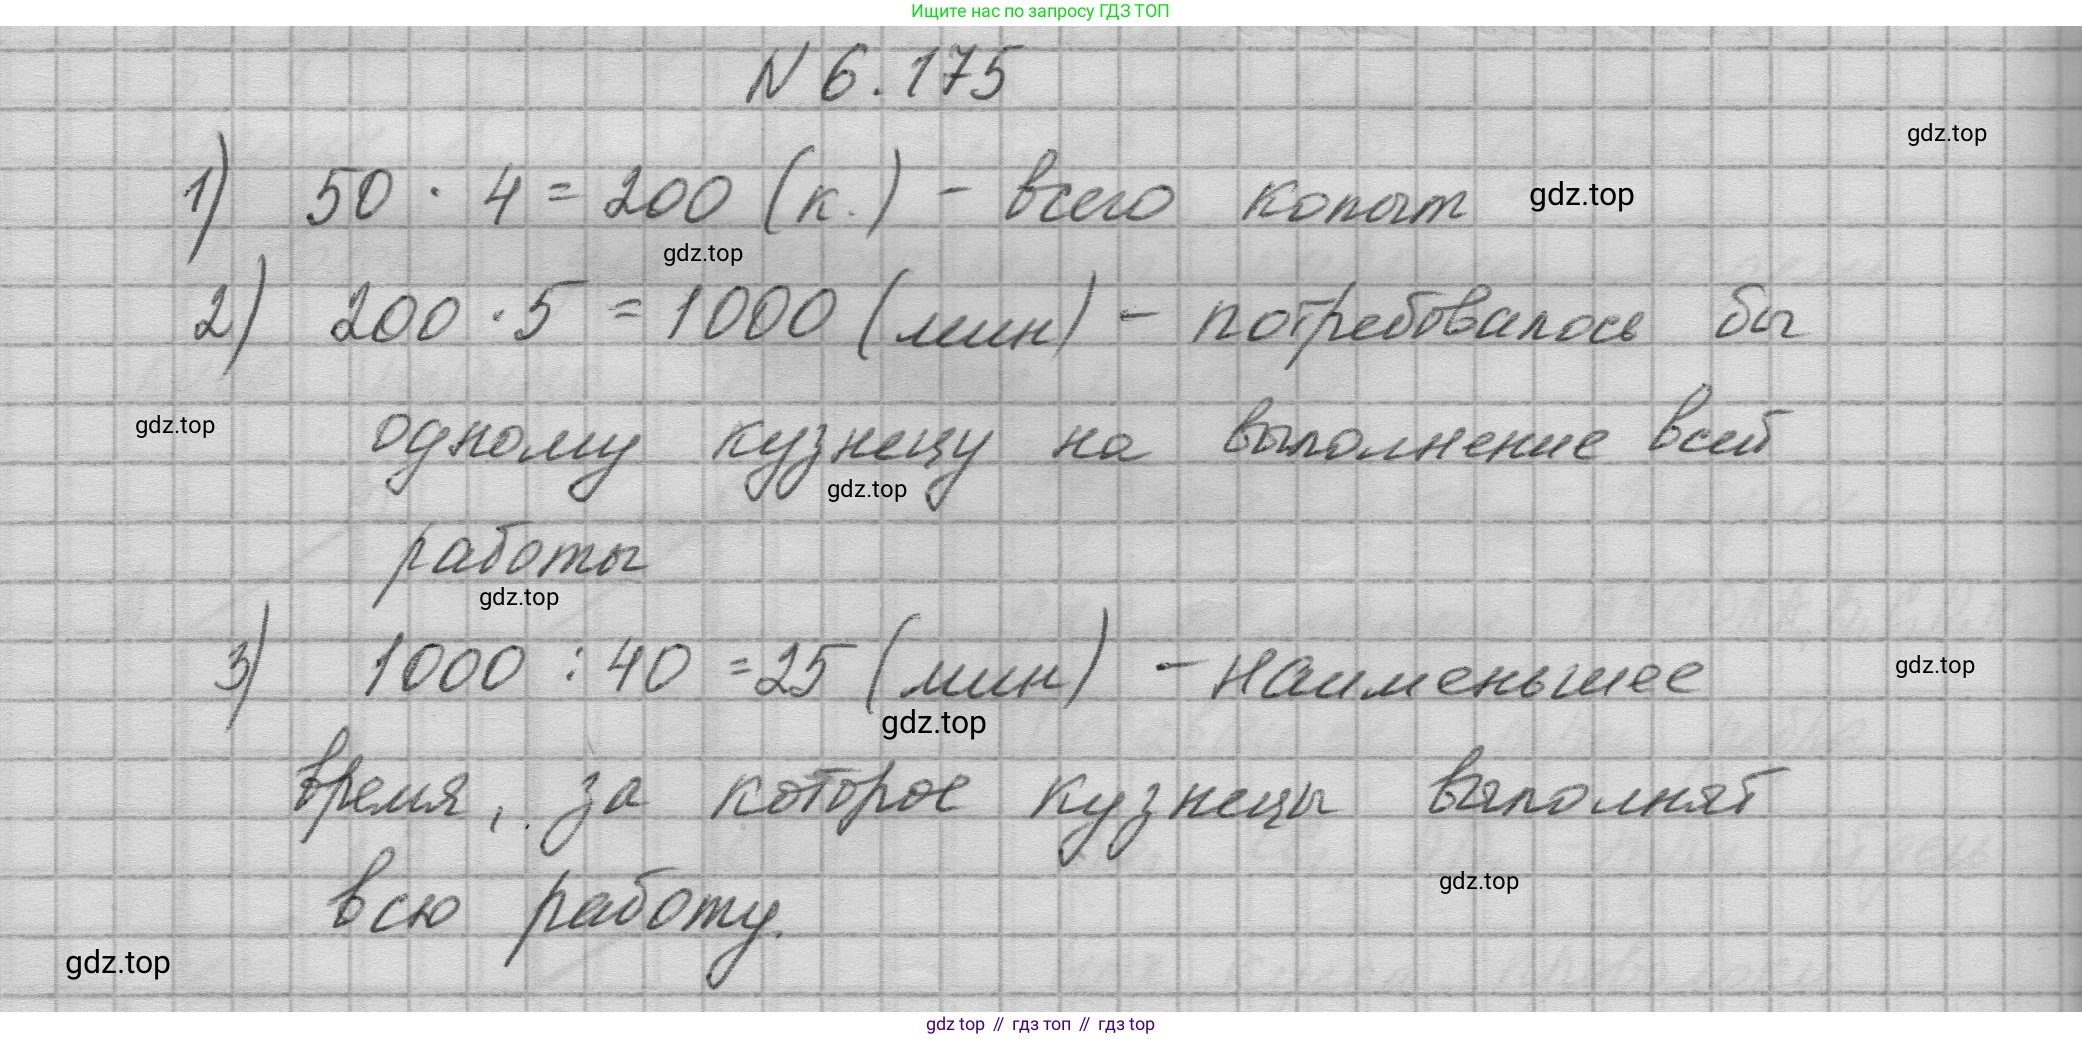 Ищите нас по запросу ГДЗ ТОП
N 6.175
gdz.top
1) 50 · 4 = 200 (к.) - всего копыт gdz.top
gdz.top
2) 200 · 5 = 1000 (мин) - потребовалось бы
gdz.top
одному кузнецу на выполнение всей
gdz.top
работы
gdz.top
3) 1000 : 40 = 25 (мин) - наименьшее
gdz.top
gdz.top
время, за которое кузнецы выполнят
gdz.top
всю работу.
gdz.top
gdz top // гдз топ // гдз top